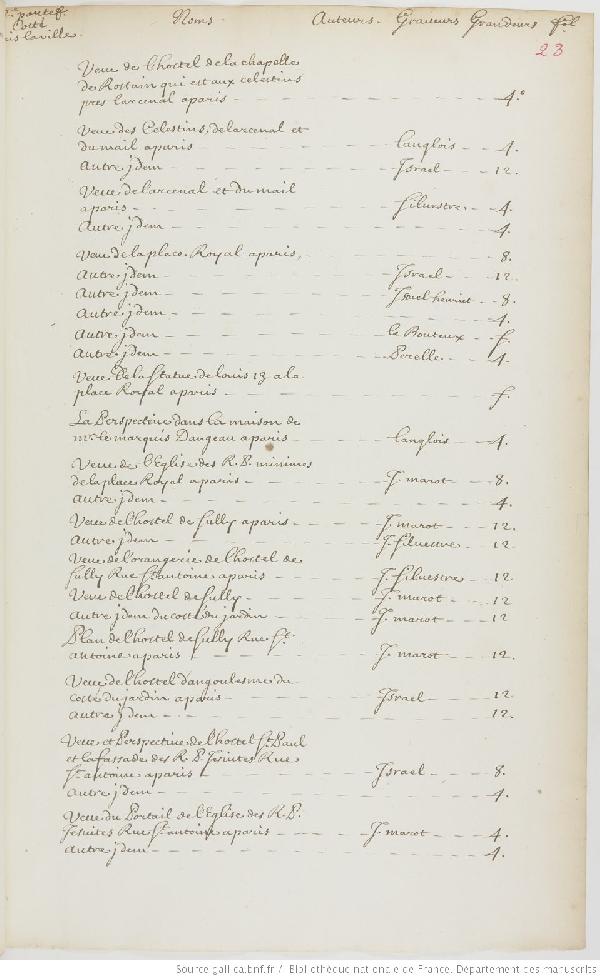 Noms Auteurs Graveurs Grandeurs fol
23
Veue de l'hostel de la chapelle
de Rostain qui est aux celestins
pres l'arcenal a paris 4°
Veue des Celestins, de l'arcenal et
du mail a paris Langlois 4.
Autre jdem Jsrael 12.
Veue de l'arcenal et du mail
a paris Siluestre 4.
Autre jdem 4.
Veue de la place Royal a paris, 8.
Autre jdem Jsrael 12.
Autre jdem Jsrael henriet 8.
Autre jdem 4.
Autre jdem le Bouteux f.
Autre jdem Perelle 4.
Veue de la Statue de louis 13 a la
place Royal a paris f.
La Perspectiue dans la maison de
mr. le marquis Dangeau a paris Langlois 4.
Veue de l'Eglise des R. P. minimes
de la place Royal a paris J. marot 8.
Autre jdem 4.
Veue de l'hostel de Sully a paris J. marot 12.
Autre jdem J. Siluestre 12
Veue de l'orangerie de l'hostel de
Sully Rue St. antoine a paris J. Siluestre 12
Veue de l'hostel de Sully J. marot 12
Autre jdem du costé du jardin J. marot 12
Plan de l'hostel de Sully Rue St.
antoine a paris J. marot 12.
Veue de l'hostel d'angoulesme du
costé du jardin a paris Jsrael 12
Autre jdem 12.
Veue et Perspectiue de l'hostel St. Paul
et la fassade des R. P. Jesuites Rue
St. antoine a paris Jsrael 8.
Autre jdem 4.
Veue du Portail de l'Eglise des R. P.
Jesuites Rue St. antoine a paris J. marot 4.
Autre jdem 4.
Source gallica.bnf.fr / Bibliothèque nationale de France. Département des manuscrits